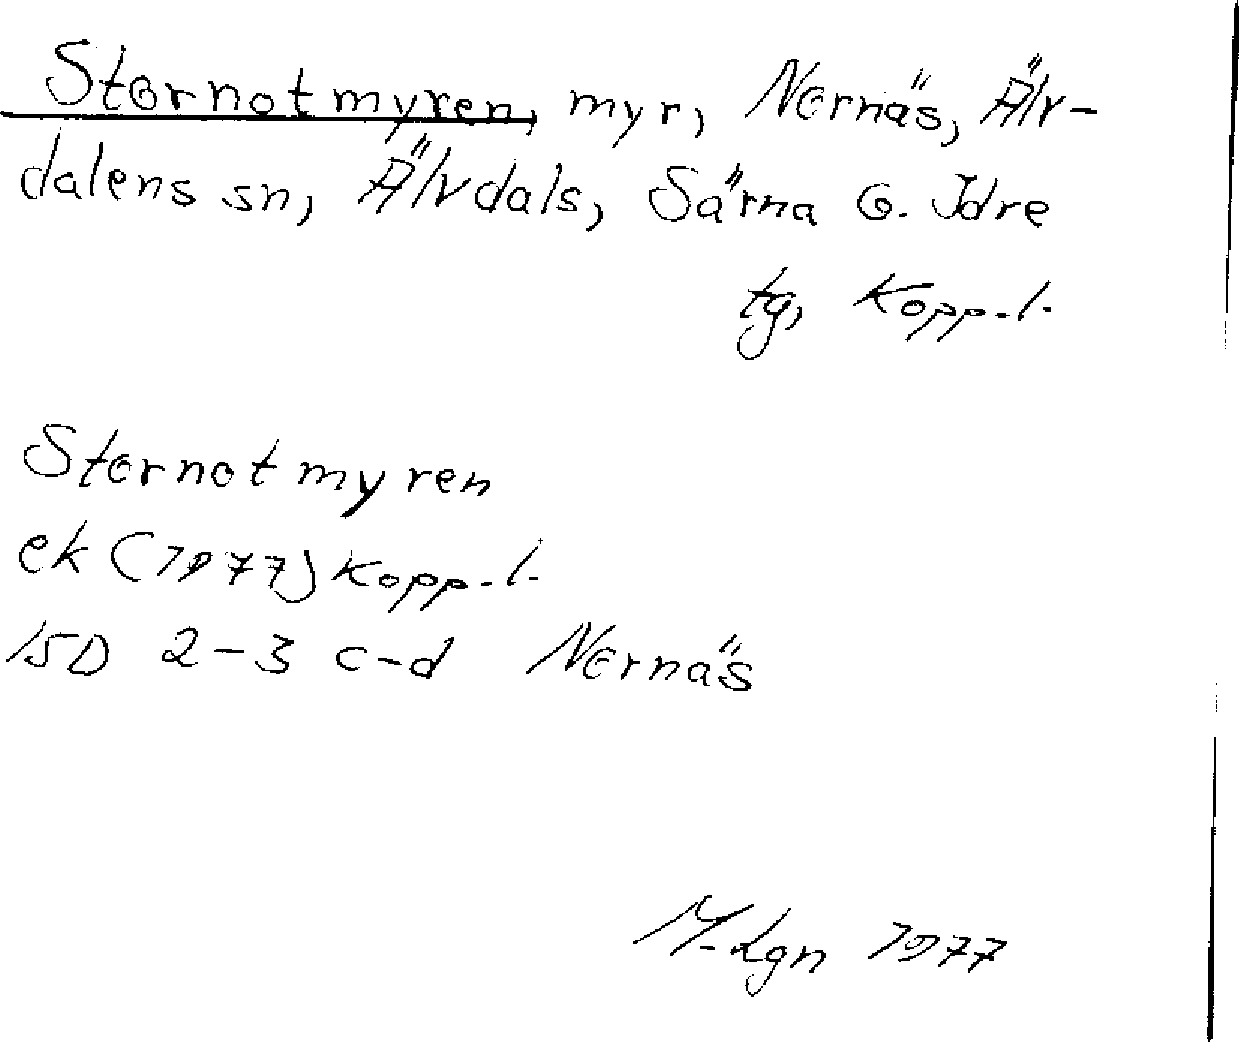 Stornotmyren, myr, Nornäs, Älv-
dalens sn, Älvdals, Särna o. Idre
tg, Kopp.l.
Stornotmyren
ek (1977) Kopp.l.
15D 2-3 c-d Nornäs
M-Lgn 1977